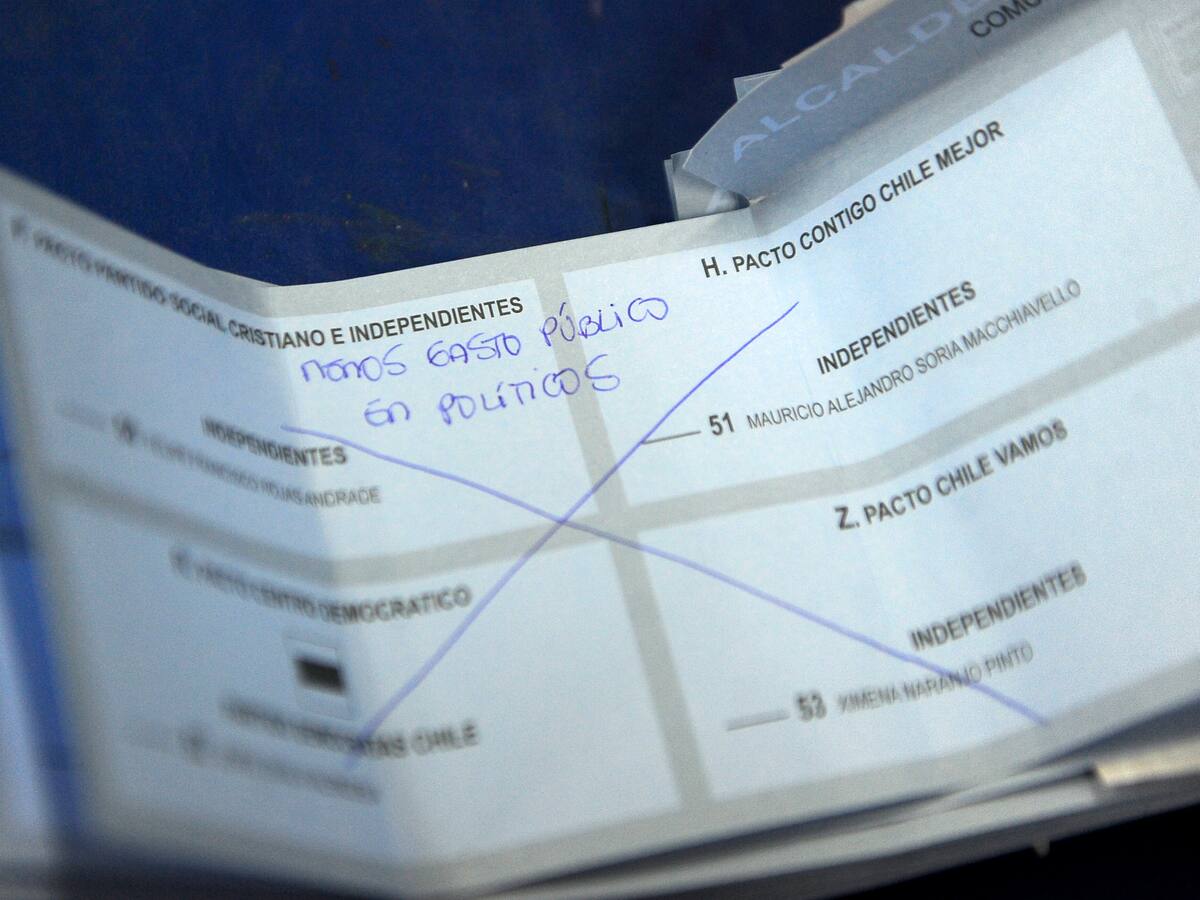 ALCALDE
COMU
PACTO PARTIDO SOCIAL CRISTIANO E INDEPENDIENTES
MENOS GASTO PÚBLICO
EN POLÍTICOS
INDEPENDIENTES
ROJAS ANDRADE
PACTO CENTRO DEMOCRATICO
CHILE
H. PACTO CONTIGO CHILE MEJOR
INDEPENDIENTES
51 MAURICIO ALEJANDRO SORIA MACCHIAVELLO
Z. PACTO CHILE VAMOS
INDEPENDIENTES
53 XIMENA NARANJO PINTO